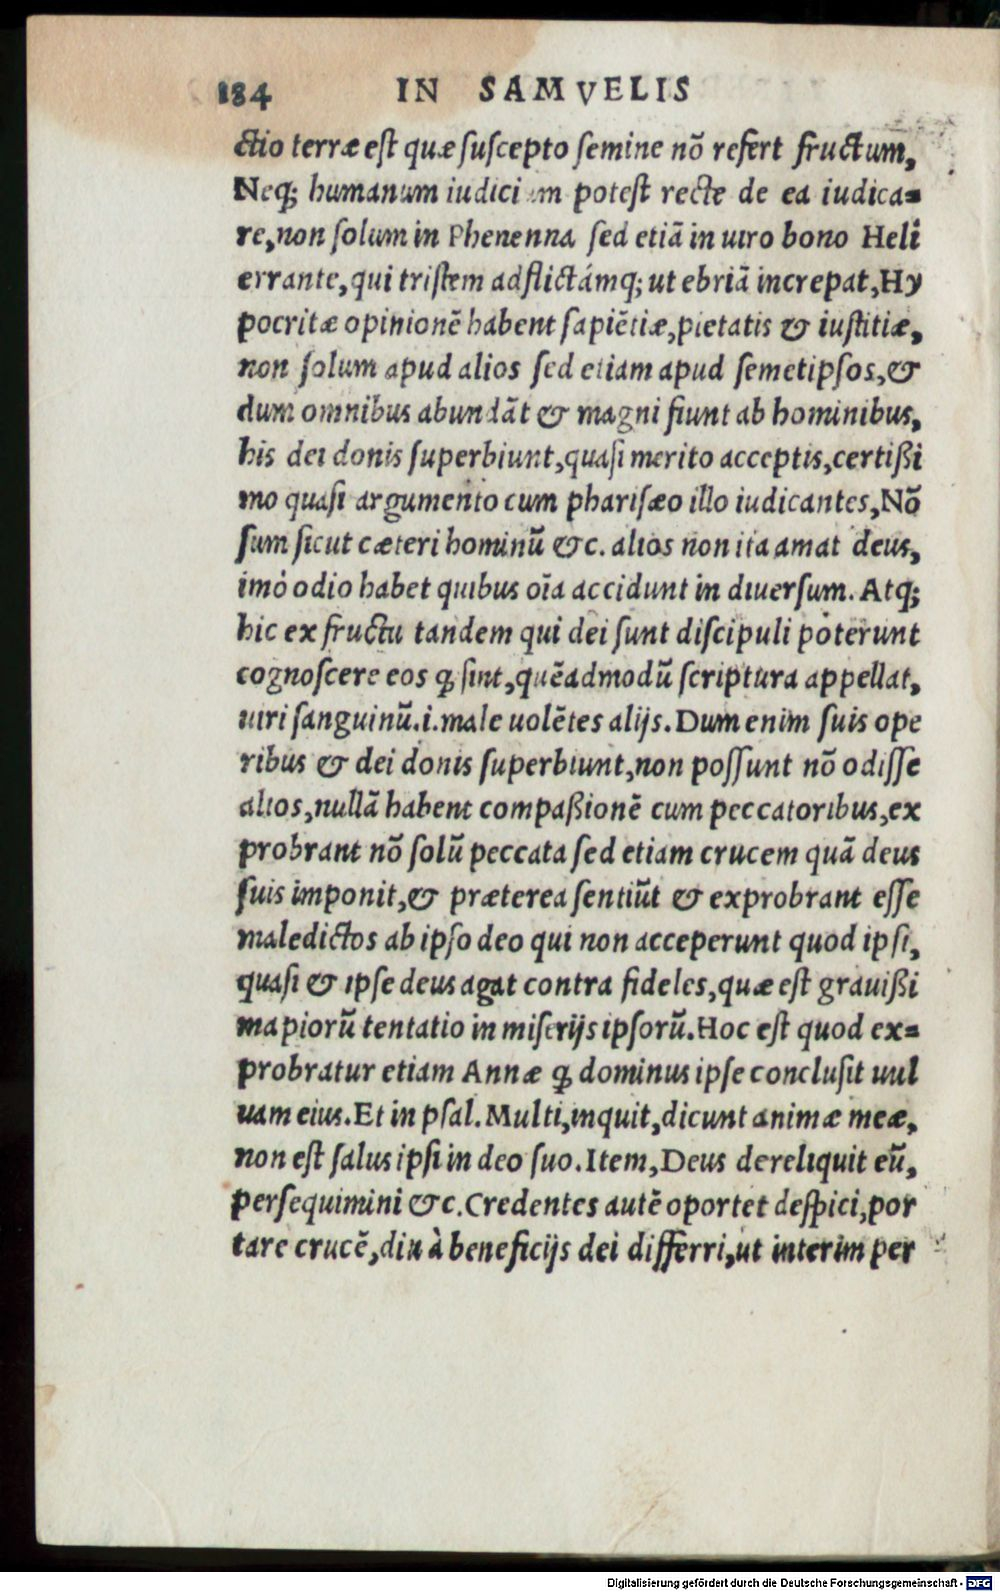 184 IN SAMVELIS
ctio terræ est quæ suscepto semine nõ refert fructum,
Neq; humanum iudicium potest recte de ea iudica=
re, non solum in Phenenna sed etiã in uiro bono Heli
errante, qui tristem adflictámq; ut ebriã increpat, Hy
pocritæ opinionẽ habent sapiẽtiæ, pietatis & iustitiæ,
non solum apud alios sed etiam apud semetipsos, &
dum omnibus abundãt & magni fiunt ab hominibus,
his dei donis superbiunt, quasi merito acceptis, certißi
mo quasi argumento cum pharisæo illo iudicantes, Nõ
sum sicut cæteri hominũ &c. alios non ita amat deus,
imò odio habet quibus oĩa accidunt in diuersum. Atq;
hic ex fructu tandem qui dei sunt discipuli poterunt
cognoscere eos ꝙ sint, quẽadmodũ scriptura appellat,
uiri sanguinũ .i. male uolẽtes alijs. Dum enim suis ope
ribus & dei donis superbiunt, non possunt nõ odisse
alios, nullã habent compaßionẽ cum peccatoribus, ex
probrant nõ solũ peccata sed etiam crucem quã deus
suis imponit, & præterea sentiũt & exprobrant esse
maledictos ab ipso deo qui non acceperunt quod ipsi,
quasi & ipse deus agat contra fideles, quæ est grauißi
ma piorũ tentatio in miserijs ipsorũ. Hoc est quod ex=
probratur etiam Annæ ꝙ dominus ipse conclusit uul
uam eius. Et in psal. Multi, inquit, dicunt animæ meæ,
non est salus ipsi in deo suo. Item, Deus dereliquit eũ,
persequimini &c. Credentes autẽ oportet despici, por
tare crucẽ, diu à beneficijs dei differri, ut interim per
Digitalisierung gefördert durch die Deutsche Forschungsgemeinschaft - DFG